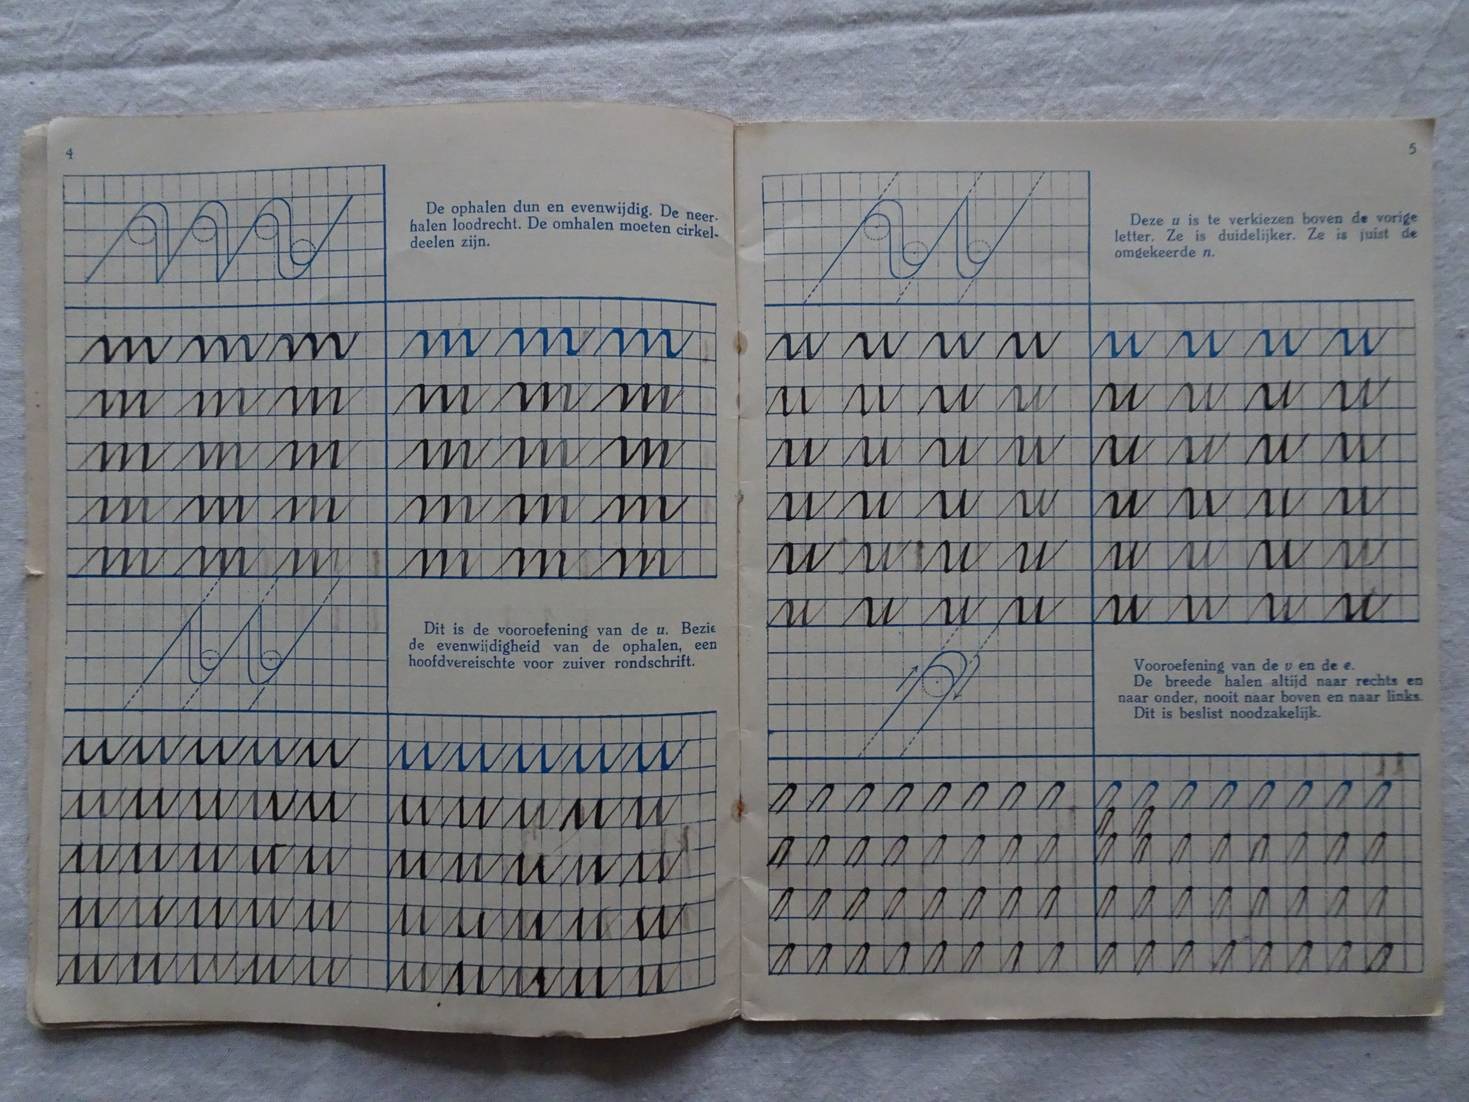 4
De ophalen dun en evenwijdig. De neer-
halen loodrecht. De omhalen moeten cirkel-
deelen zijn.
m m m m m m
m m m m m m
m m m m m m
m m m m m m
m m m m m m
Dit is de vooroefening van de u. Bezie
de evenwijdigheid van de ophalen, een
hoofdvereischte voor zuiver rondschrift.
5
Deze u is te verkiezen boven de vorige
letter. Ze is duidelijker. Ze is juist de
omgekeerde n.
u u u u u u u u
u u u u u u u u
u u u u u u u u
u u u u u u u u
u u u u u u u u
u u u u u u u u
Vooroefening van de v en de e.
De breede halen altijd naar rechts en
naar onder, nooit naar boven en naar links.
Dit is beslist noodzakelijk.